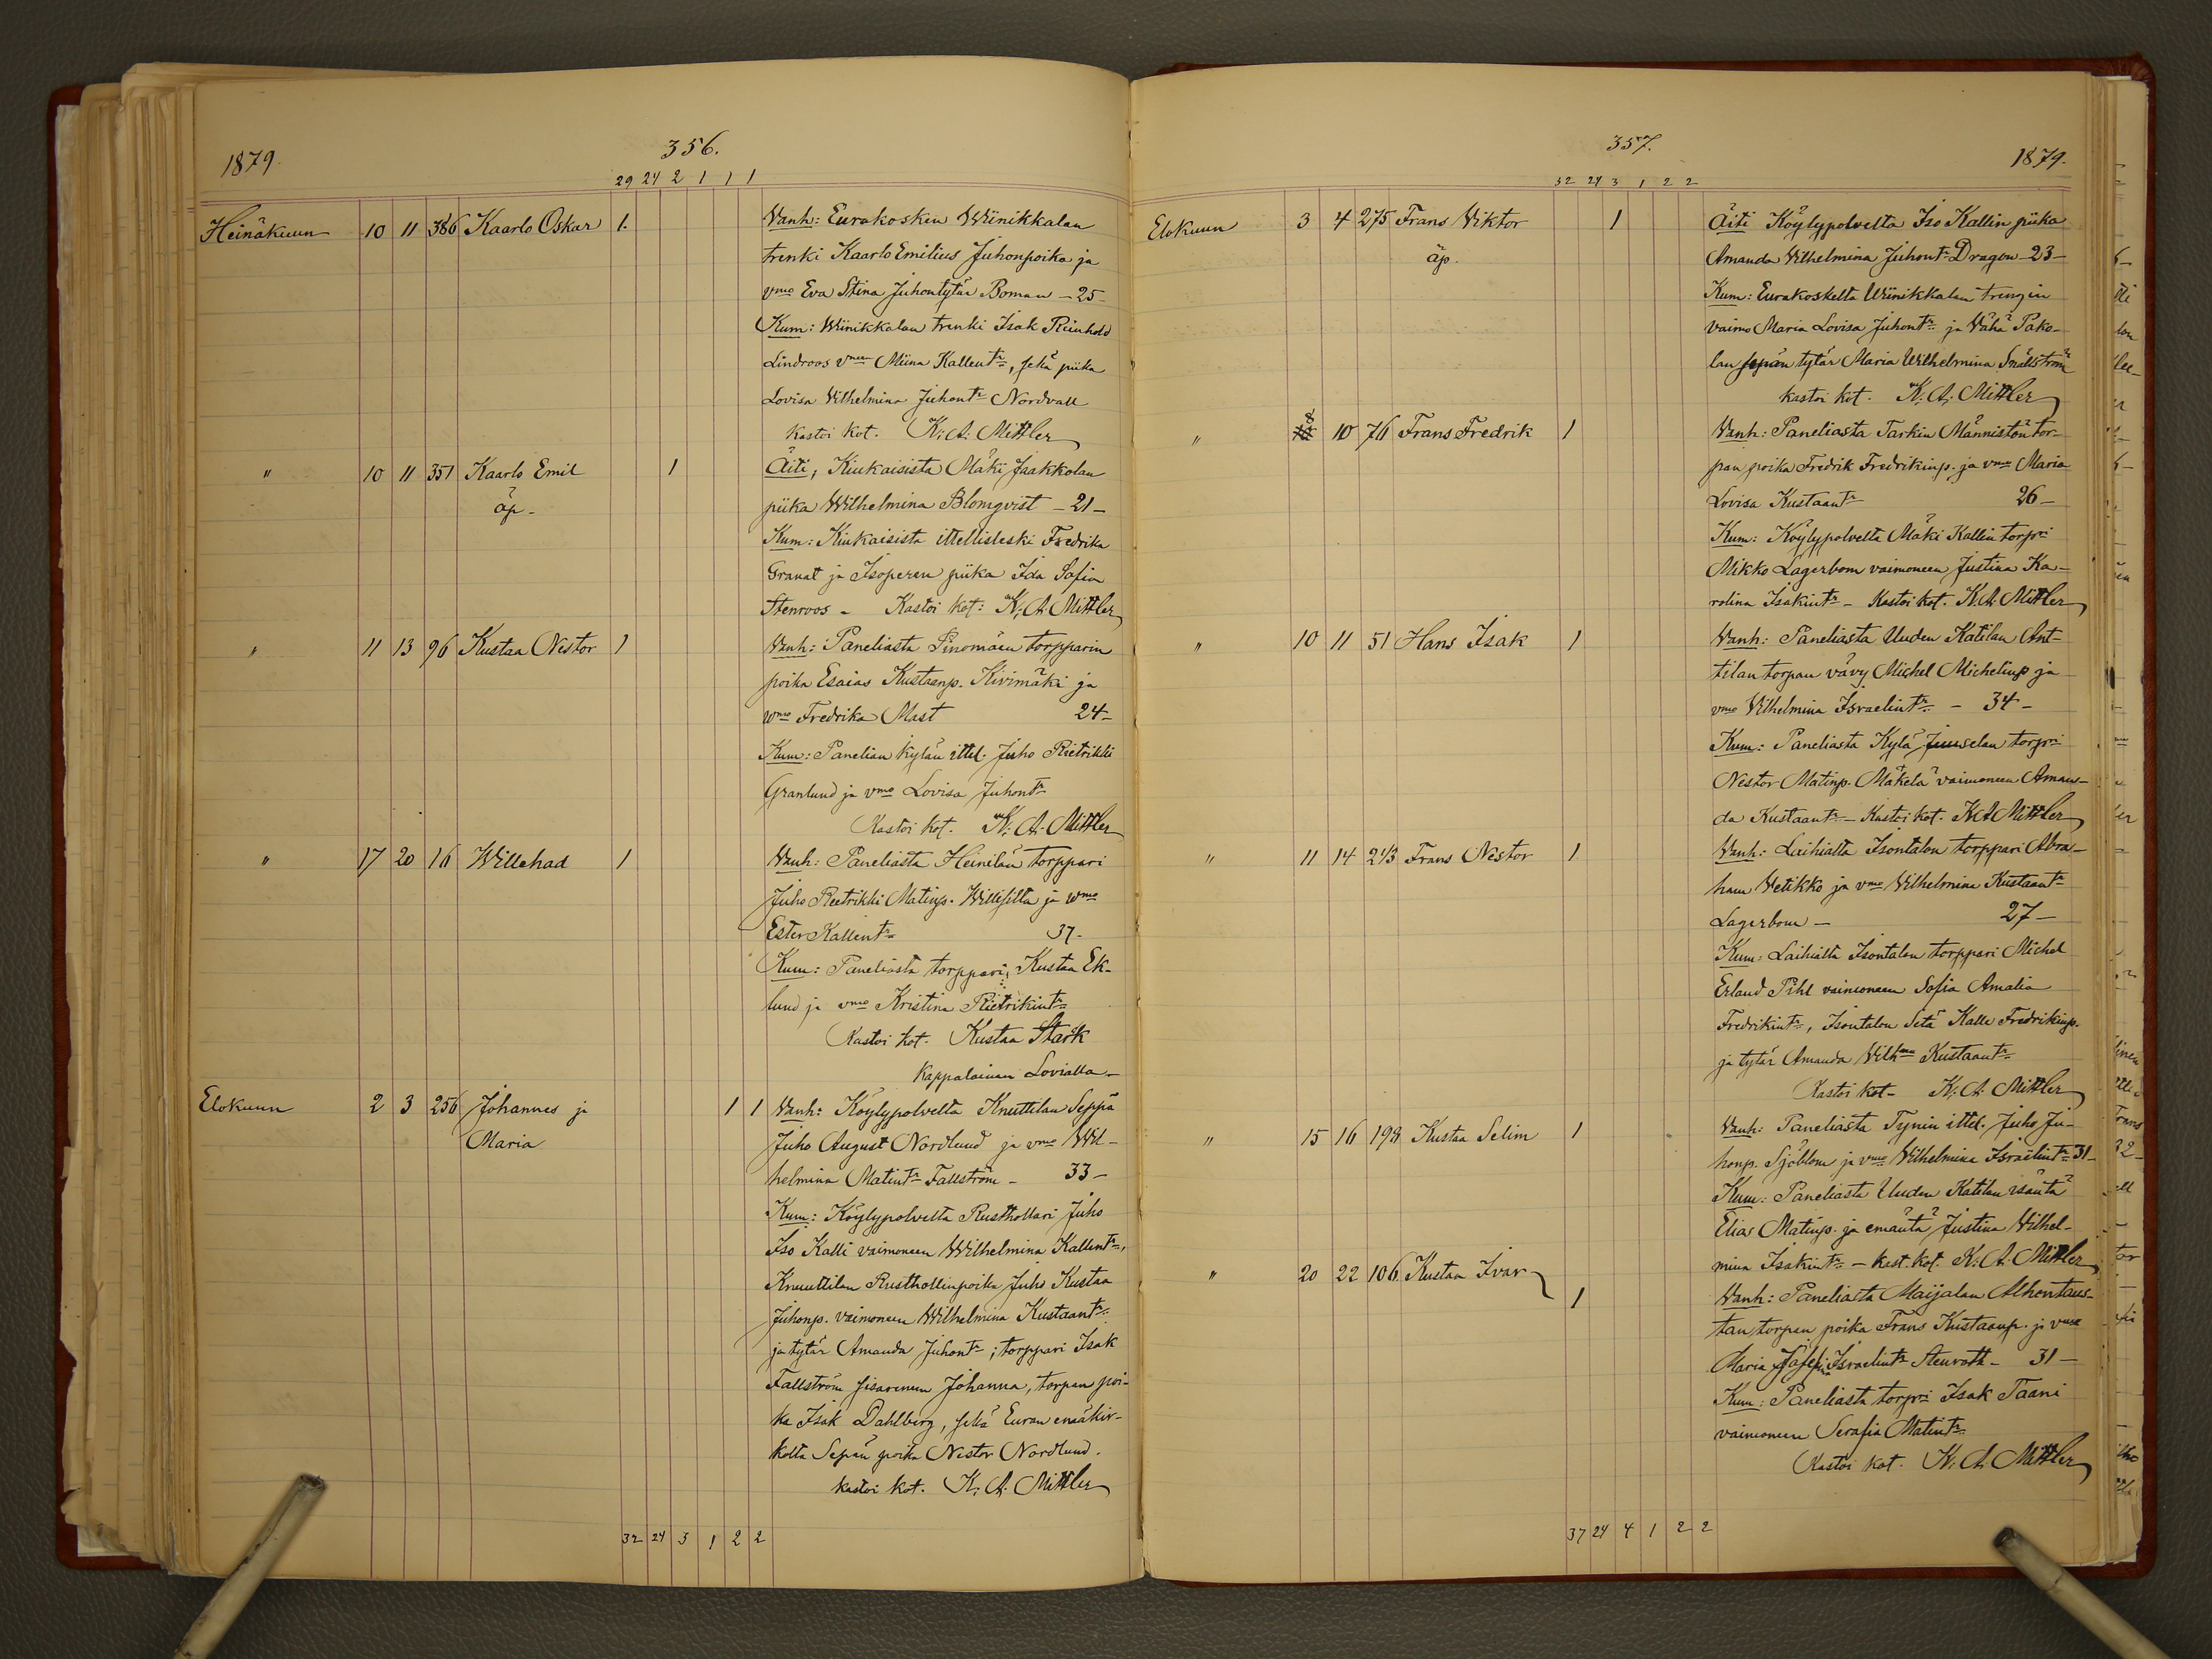 1879.
356.
29 24 2 1 1 1
Heinäkuun 10 11 386 Kaarlo Oskar 1. Vanh: Eurakosken Wiinikkalan
trenki Kaarlo Emilius Juhonpoika ja
vmo Eva Stina Juhontytär Boman - 25 -
Kum: Wiinikkalan trenki Isak Reinhold
Lindroos vmen Miina Kallentr, sekä piika
Lovisa Vilhelmina Juhontr Nordvall
Kastoi kot. K: A: Mittler
" 10 11 351 Kaarlo Emil 1 Äiti, Kiukaisista Mäki Jaakkolan
äp - piika Wilhelmina Blomqvist - 21 -
Kum: Kiukaisista ittellisleski Fredrika
Granat ja Isoperen piika Ida Sofia
Stenroos - Kastoi kot: K: A. Mittler
" 11 13 96 Kustaa Nestor 1 Vanh: Paneliasta Pinomäen torpparin
poika Esaias Kustaanp. Kivimäki ja
wmo Fredrika Mast 24 -
Kum: Panelian kylän ittel. Juho Rietrikki
Granlund ja vmo Lovisa Juhontr
Kastoi kot. K: A: Mittler
" 17 20 16 Willehad 1 Vanh: Paneliasta Heinilän torppari
Juho Reetrikki Matinp. Willisilta ja wmo
Ester Kallentr 37 -
Kum: Paneliasta torppari Kustaa Ek-
lund ja vmo Kristina Rietrikintr
Kastoi kot. Kustaa Stark
Kappalainen Lavialla -
Elokuun 2 3 256 Johannes ja 1 1 Vanh: Köylypolvelta Knuttilan Seppä
Maria Juho August Nordlund ja vmo Wil-
helmina Matintr Fallström - 33 -
Kum: Köylypolvelta Rusthollari Juho
Iso Kalli vaimoneen Wilhelmina Kallentr,
Knuuttilan Rusthollinpoika Juho Kustaa
Juhonp. vaimoneen Wilhelmina Kustaantr
ja tytär Amanda Juhontr; torppari Isak
Fallström sisarenen Johanna, torpan poi-
ka Isak Dahlberg, sekä Euran emäkir-
kolta Sepän poika Nestor Nordlund.
kastoi kot. K: A: Mittler
32 24 3 1 2 2
357.
1879.
32 24 3 1 2 2
Elokuun 3 4 275 Frans Viktor 1 Äiti Köylypolvelta Iso Kallin piika
äp. Amanda Vilhelmina Juhontr Dragon - 23 -
Kum: Eurakoskelta Wiinikkalan trengin
vaimo Maria Lovisa Juhontr ja Vähä Pako-
lan sepän tytär Maria Wilhelmina Snällström
kastoi kot. K: A: Mittler
" 8 10 76 Frans Fredrik 1 Vanh: Paneliasta Tarkin Männistön tor-
pan poika Fredrik Fredrikinp. ja vmo Maria
Lovisa Kustaantr 26 -
Kum: Köylypolvelta Mäki Kallin torpri
Mikko Lagerbom vaimoneen Justina Ka-
rolina Isakintr - Kastoi kot. K: A: Mittler
" 10 11 51 Hans Isak 1 Vanh: Paneliasta Uuden Katilan Ant-
tilan torpan vävy Michel Michelinp ja
vmo Vilhelmina Israelintr - 34 -
Kum: Paneliasta Kylä Juuselan torpri
Nestor Matinp. Mäkelä vaimoneen Aman-
da Kustaantr - Kastoi kot. K A Mittler
" 11 14 243 Frans Nestor 1 Vanh: Laihialta Isontalon torppari Abra-
ham Vetikko ja vmo Vilhelmina Kustaantr
Lagerbom - 27 -
Kum: Laihialta Isontalon torppari Michel
Erland Pihl vaimoneen Sofia Amalia
Fredrikintr, Isontalon Setä Kalle Fredrikinp.
ja tytär Amanda Vilhma Kustaantr
Kastoi kot - K: A: Mittler
" 15 16 198 Kustaa Selim 1 Vanh: Paneliasta Tynin ittel. Juho Ju-
honp. Sjöblom ja vmo Vilhelmina Israelintr 31 -
Kum: Paneliasta Uuden Katilan isäntä
Elias Matinp. ja emäntä Justina Vilhel-
mina Isakintr - kast. kot. K: A: Mittler
" 20 22 106 Kustaa Ivar 1 Vanh: Paneliasta Maijalan Alhontaus-
tan torpan poika Frans Kustaanp. ja vmo
Maria Israelintr Stenroth - 31 -
Kum: Paneliasta torpri Isak Taani
vaimoneen Serafia Matintr
Kastoi kot. K: A: Mittler
37 24 4 1 2 2